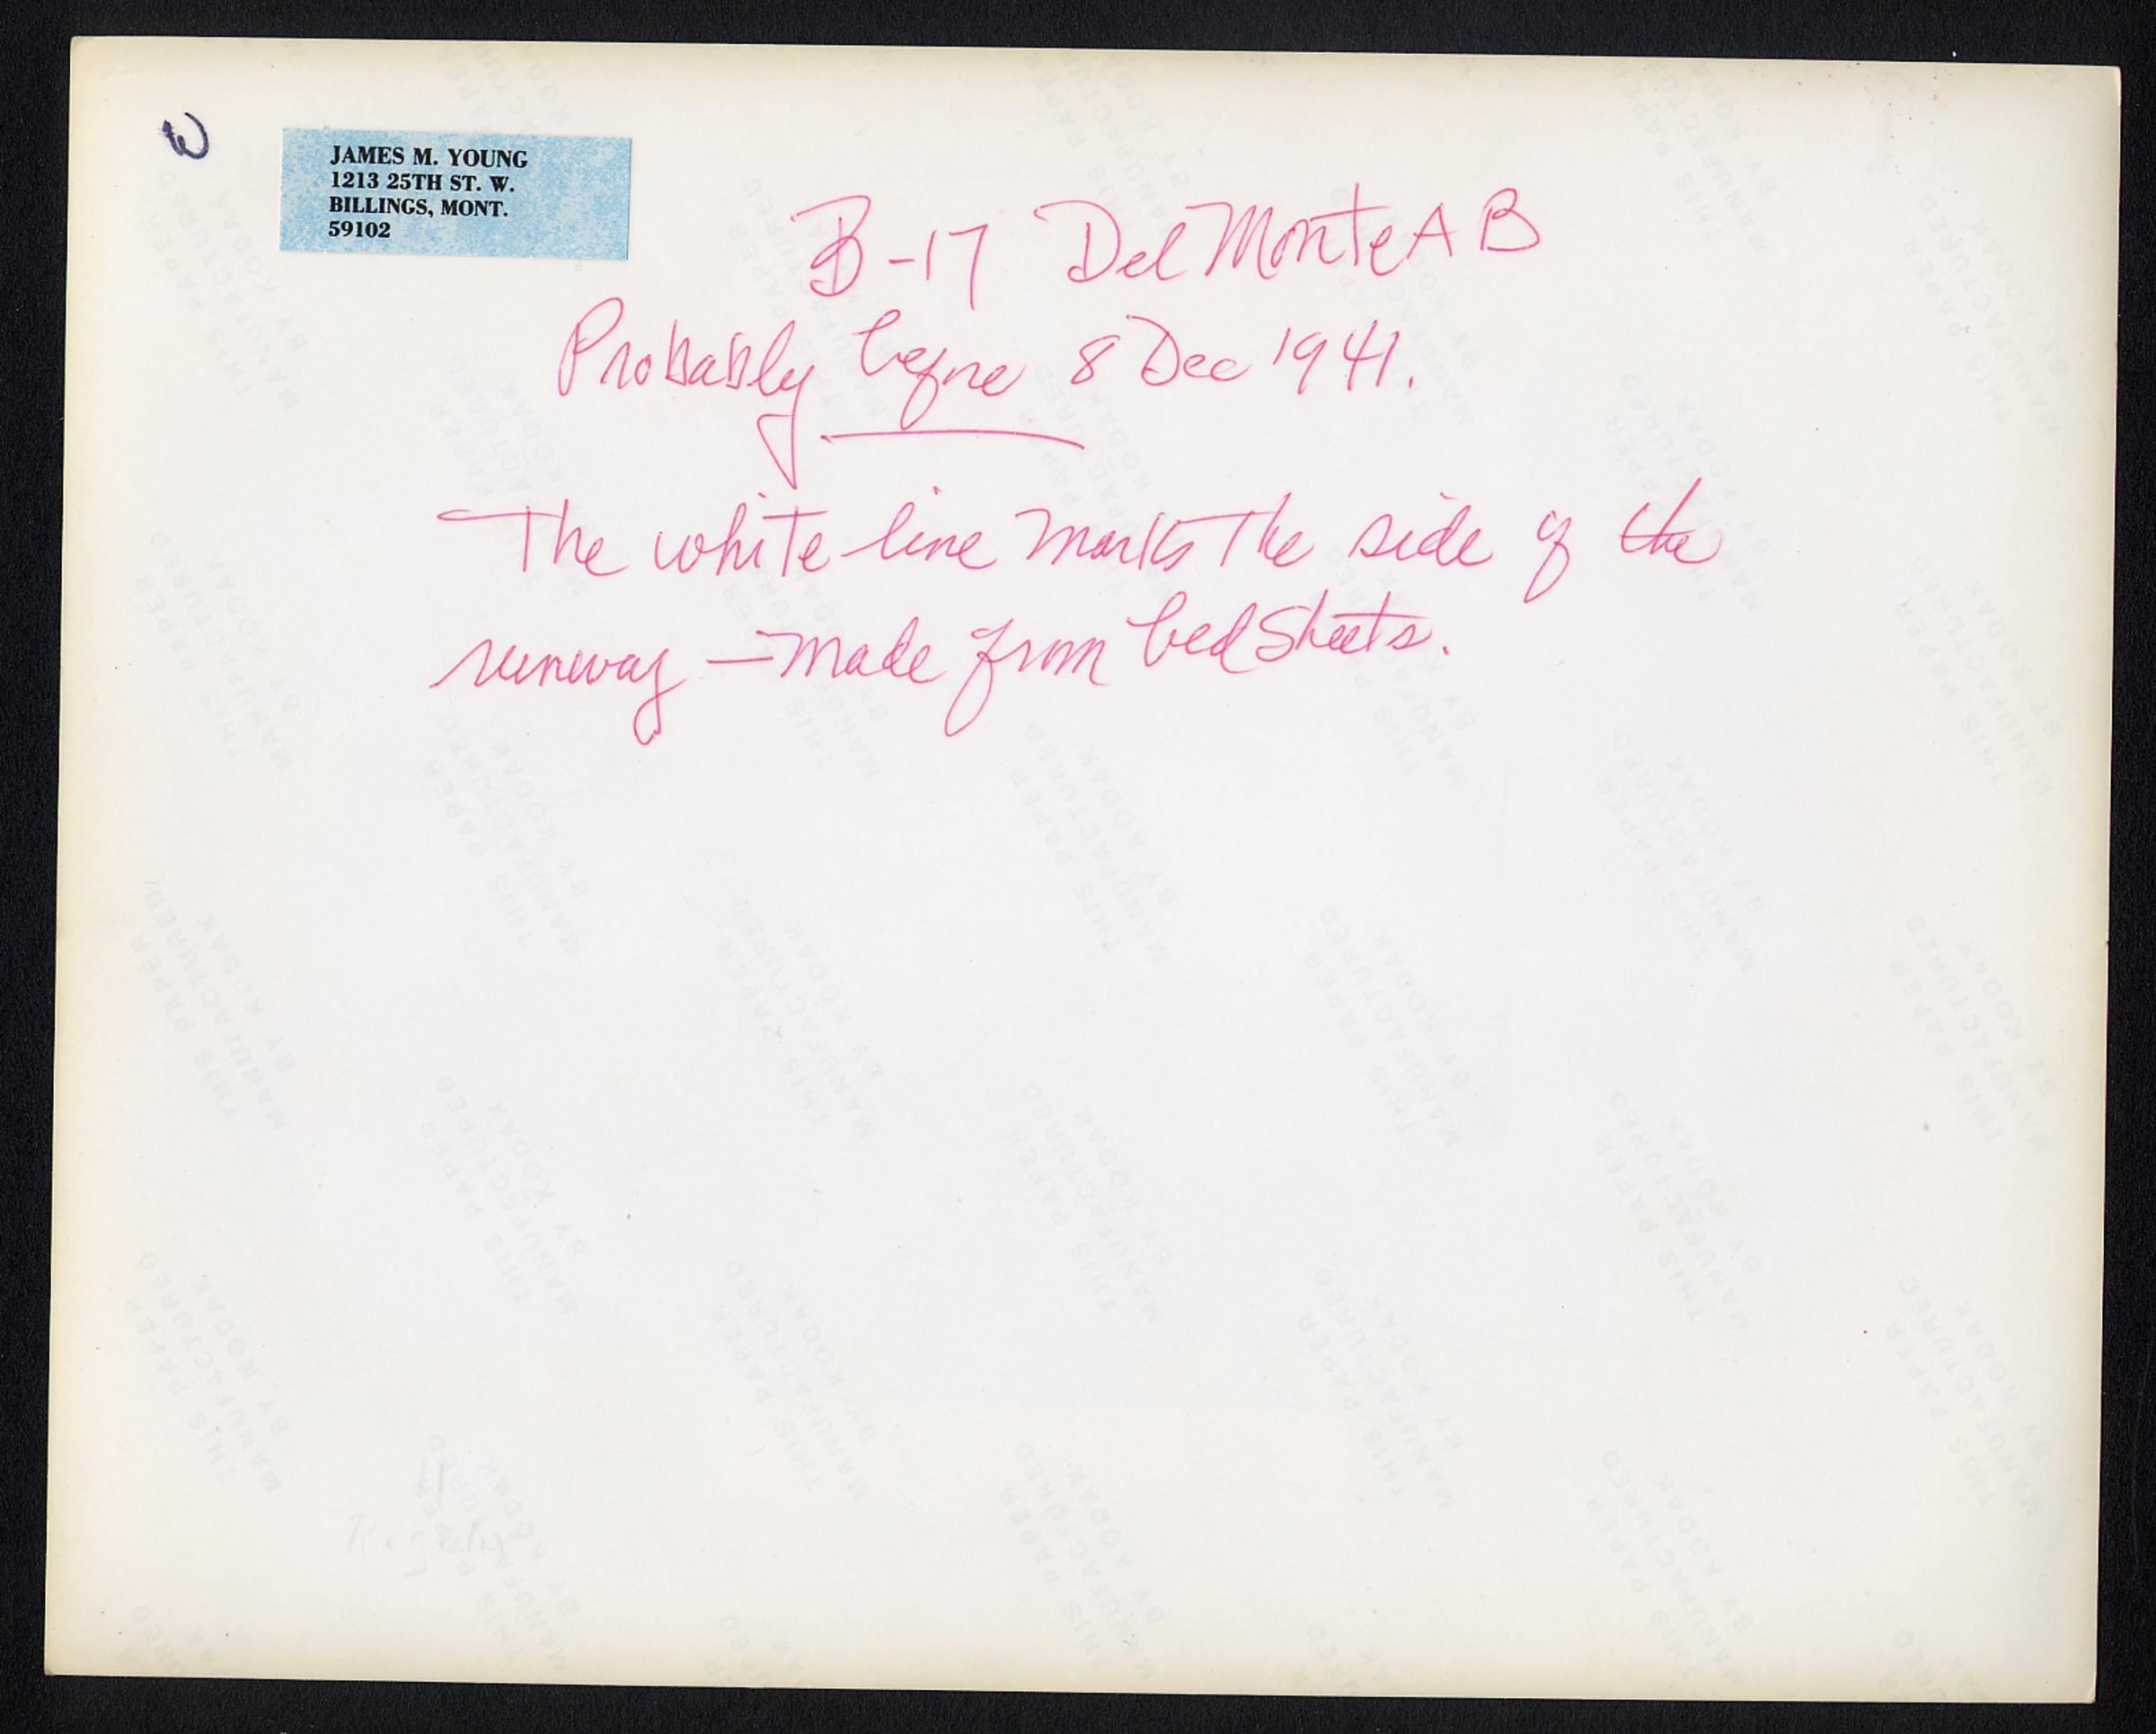 JAMES M. YOUNG
1213 25TH ST. W.
BILLINGS, MONT.
59102
B-17 Del Monte A B
Probably before 8 Dec 1941.
The white line marks the side of the
runway — made from bedsheets.
THIS PAPER
MANUFACTURED
BY KODAK